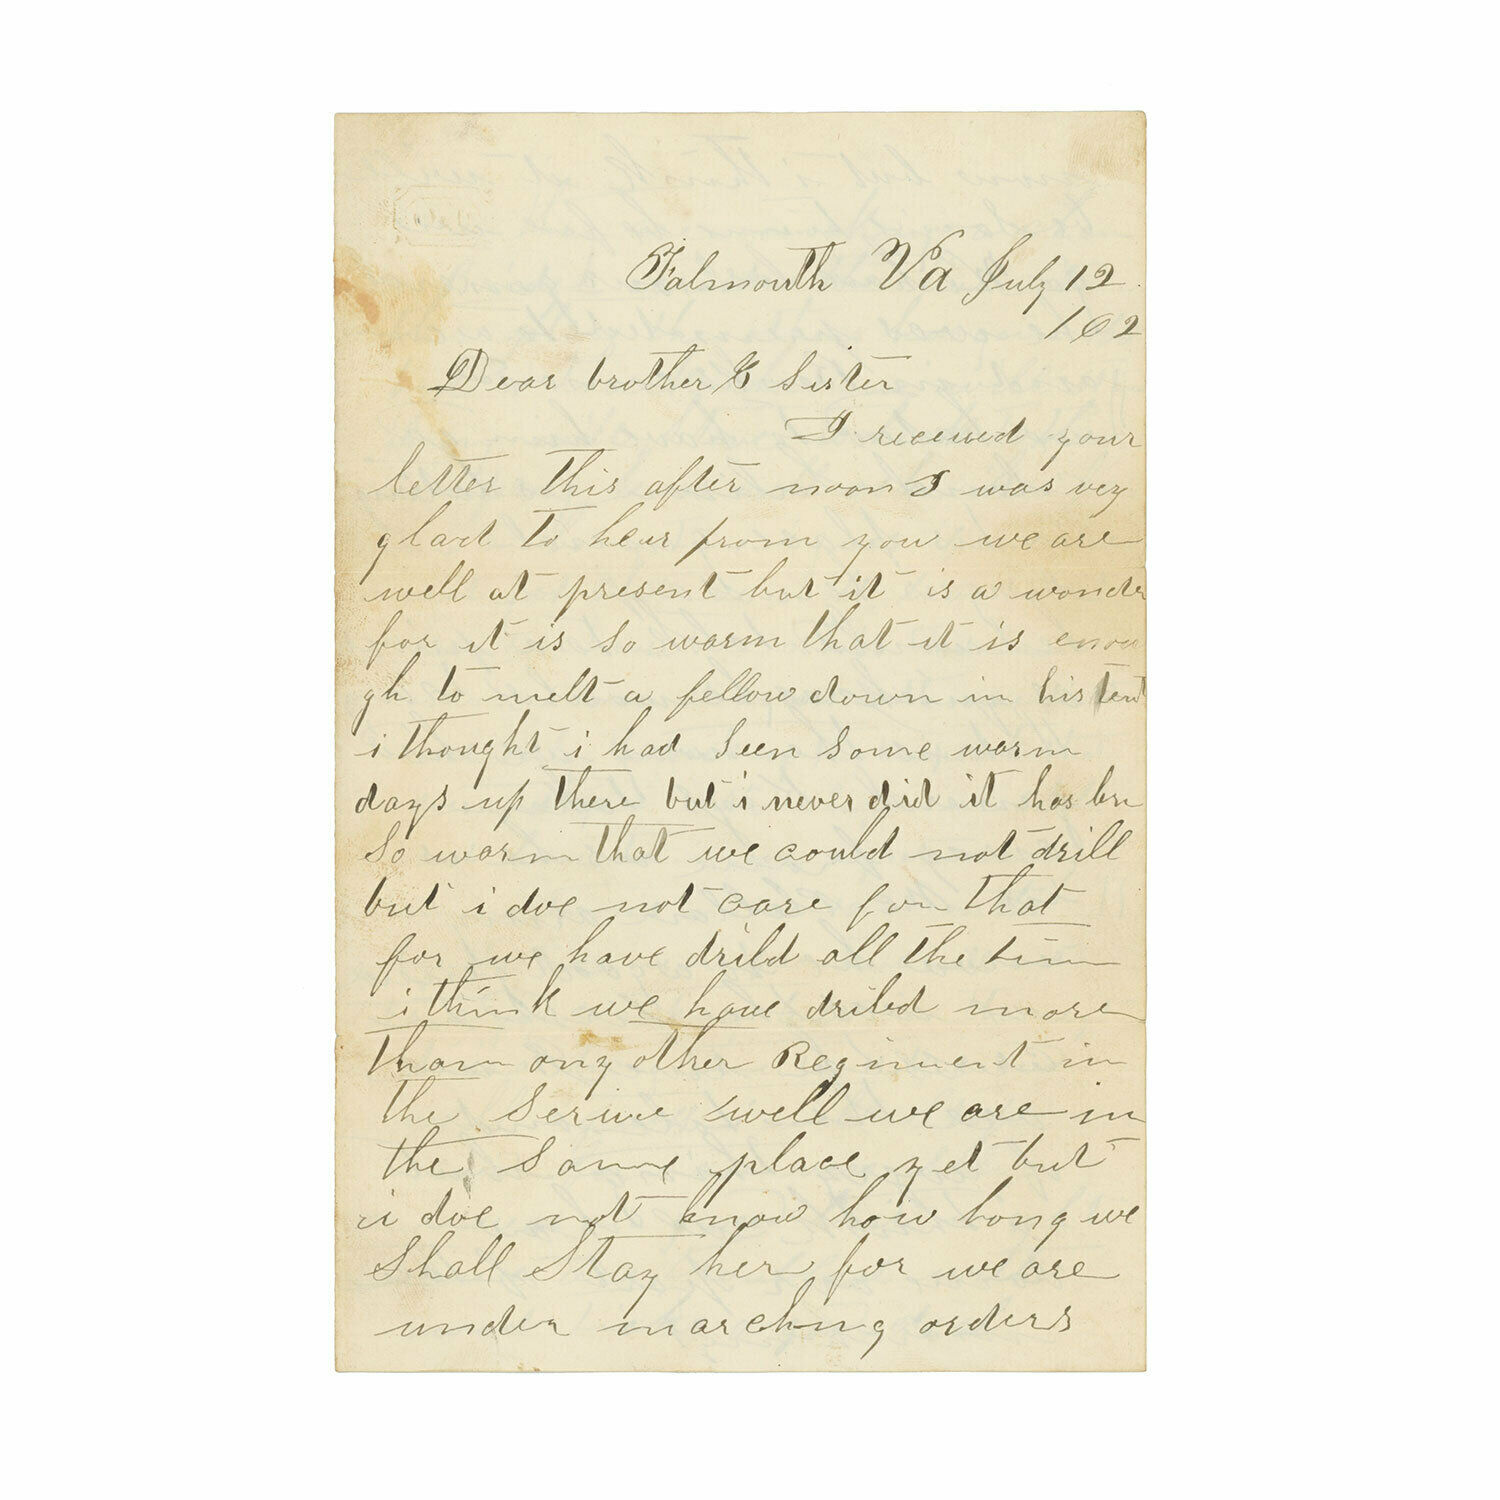 Falmouth Va July 12
/62
Dear brother & Sister
I received your
letter this after noon I was very
glad to hear from you we are
well at present but it is a wonder
for it is so warm that it is enou
gh to melt a fellow down in his tent
i thought i had seen some warm
days up there but i never did it has ben
So warm that we could not drill
but i doe not care for that
for we have drild all the time
i think we have driled more
than any other Regiment in
the Service well we are in
the same place yet but
i doe not know how long we
Shall Stay her for we are
under marching orders